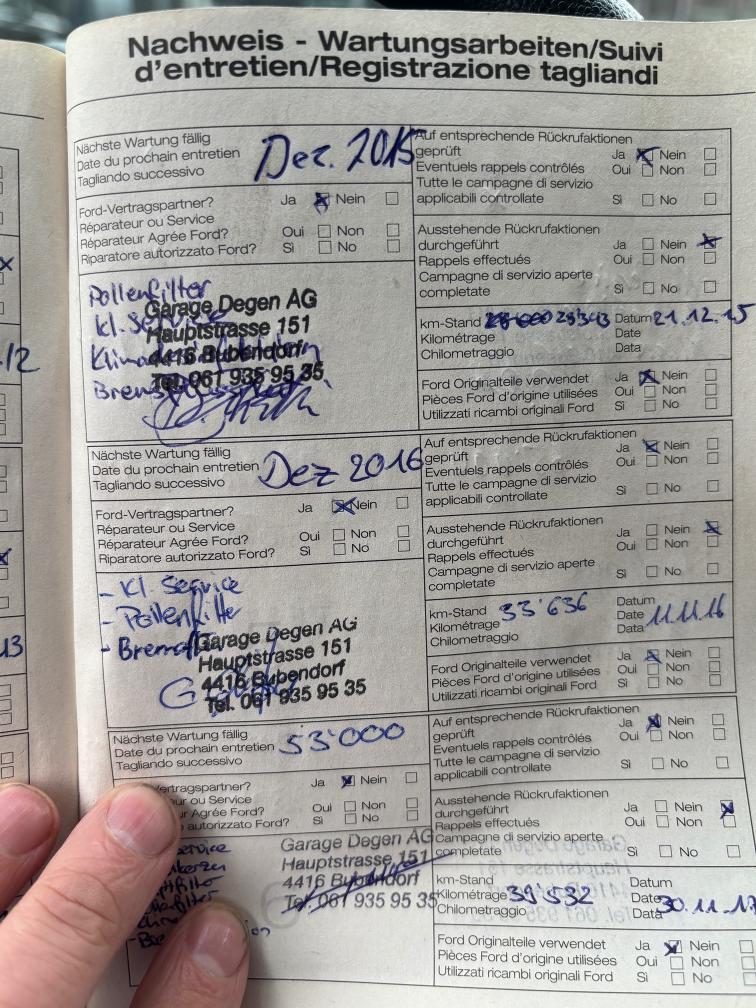 Nachweis - Wartungsarbeiten/Suivi
d'entretien/Registrazione tagliandi
Nächste Wartung fällig
Date du prochain entretien
Tagliando successivo
Dez. 2015
Ford-Vertragspartner? Ja Nein
Réparateur ou Service
Réparateur Agrée Ford? Oui Non
Riparatore autorizzato Ford? Sì No
Pollenfilter
kl. Service
Garage Degen AG
Hauptstrasse 151
4416 Bubendorf
Tel. 061 935 95 35
Auf entsprechende Rückrufaktionen
geprüft Ja Nein
Eventuels rappels contrôlés Oui Non
Tutte le campagne di servizio
applicabili controllate Sì No
Ausstehende Rückrufaktionen
durchgeführt Ja Nein
Rappels effectués Oui Non
Campagne di servizio aperte
completate Sì No
km-Stand
Kilométrage
Chilometraggio
Datum 21.12.15
Date
Data
Ford Originalteile verwendet Ja Nein
Pièces Ford d'origine utilisées Oui Non
Utilizzati ricambi originali Ford Sì No
Nächste Wartung fällig
Date du prochain entretien
Tagliando successivo
Dez 2016
Ford-Vertragspartner? Ja Nein
Réparateur ou Service
Réparateur Agrée Ford? Oui Non
Riparatore autorizzato Ford? Sì No
- Kl. Service
- Pollenfilter
Garage Degen AG
Hauptstrasse 151
4416 Bubendorf
Tel. 061 935 95 35
Auf entsprechende Rückrufaktionen
geprüft Ja Nein
Eventuels rappels contrôlés Oui Non
Tutte le campagne di servizio
applicabili controllate Sì No
Ausstehende Rückrufaktionen
durchgeführt Ja Nein
Rappels effectués Oui Non
Campagne di servizio aperte
completate Sì No
km-Stand 33'636
Kilométrage
Chilometraggio
Datum
Date 11.11.16
Data
Ford Originalteile verwendet Ja Nein
Pièces Ford d'origine utilisées Oui Non
Utilizzati ricambi originali Ford Sì No
Nächste Wartung fällig
Date du prochain entretien
Tagliando successivo
53'000
Vertragspartner? Ja Nein
ou Service
Agrée Ford? Oui Non
autorizzato Ford? Sì No
Garage Degen AG
Hauptstrasse 151
4416 Bubendorf
Tel. 061 935 95 35
Auf entsprechende Rückrufaktionen
geprüft Ja Nein
Eventuels rappels contrôlés Oui Non
Tutte le campagne di servizio
applicabili controllate Sì No
Ausstehende Rückrufaktionen
durchgeführt Ja Nein
Rappels effectués Oui Non
Campagne di servizio aperte
completate Sì No
km-Stand
Kilométrage 39'532
Chilometraggio
Datum
Date
Data 30.11.17
Ford Originalteile verwendet Ja Nein
Pièces Ford d'origine utilisées Oui Non
Utilizzati ricambi originali Ford Sì No